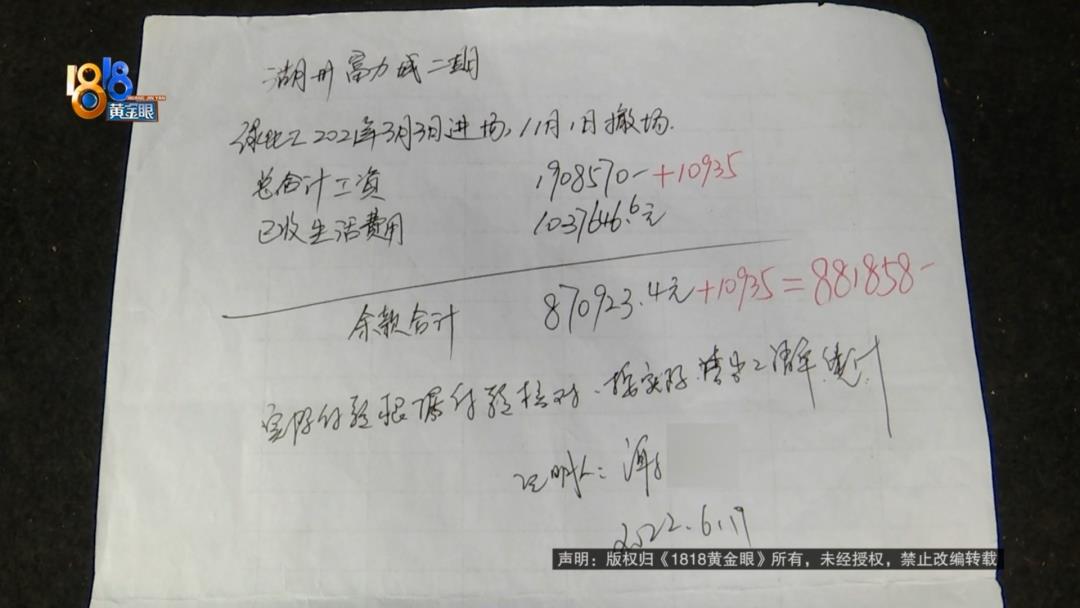 1818
黄金眼
湖州富力城二期
绿化工2021年3月3日进场,11月1日撤场.
总合计工资 1908570- +10935
已收生活费用 1037646.6元
余款合计 870923.4元+10935=881858-
实际付款根据付款核对、按实际
证明人:
2022.6.19
声明:版权归《1818黄金眼》所有,未经授权,禁止改编转载